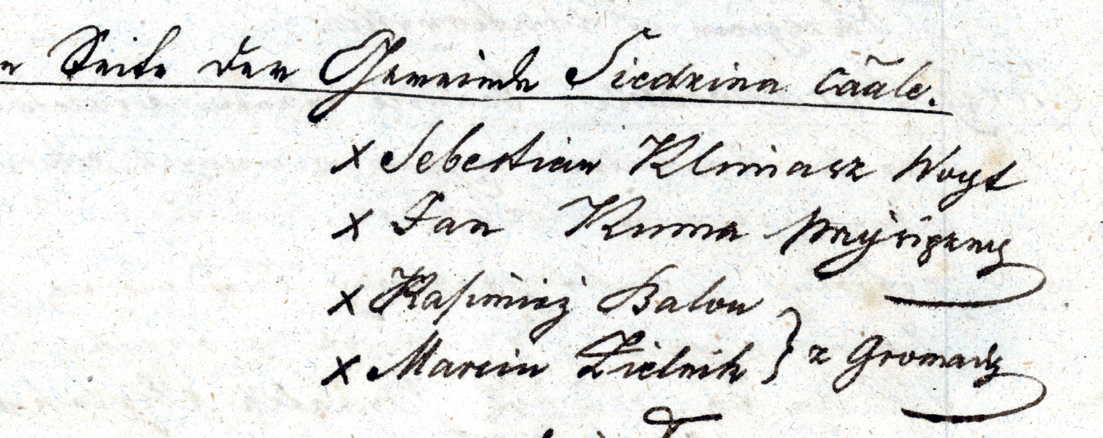 Seite der Gemeinde Siedzina
x Sebestian Klimasz Woyt
x Jan Kuma Przysiężny
x Kasimirz Balon
x Marcin Zielnik } z Gromady